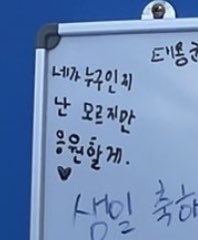 네가 누구인지
난 모르지만
응원할게.
♥
태용
생일 축하